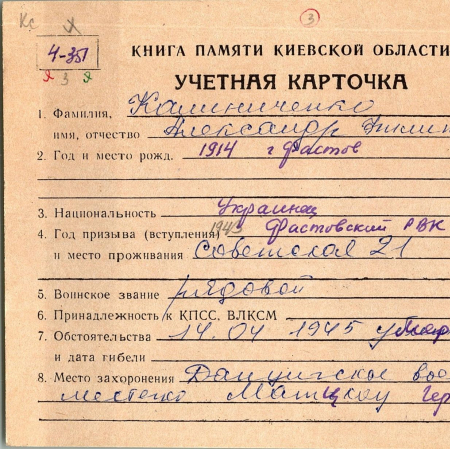 3
4-351
3
КНИГА ПАМЯТИ КИЕВСКОЙ ОБЛАСТИ
УЧЕТНАЯ КАРТОЧКА
1. Фамилия, Калиниченко
имя, отчество Александр
2. Год и место рожд. 1914 г Фастов
3. Национальность Украинец
4. Год призыва (вступления) 1943 Фастовский РВК
и место проживания Советская 21
5. Воинское звание рядовой
6. Принадлежность к КПСС, ВЛКСМ
7. Обстоятельства 14.04 1945
и дата гибели
8. Место захоронения Данцигское
местечко